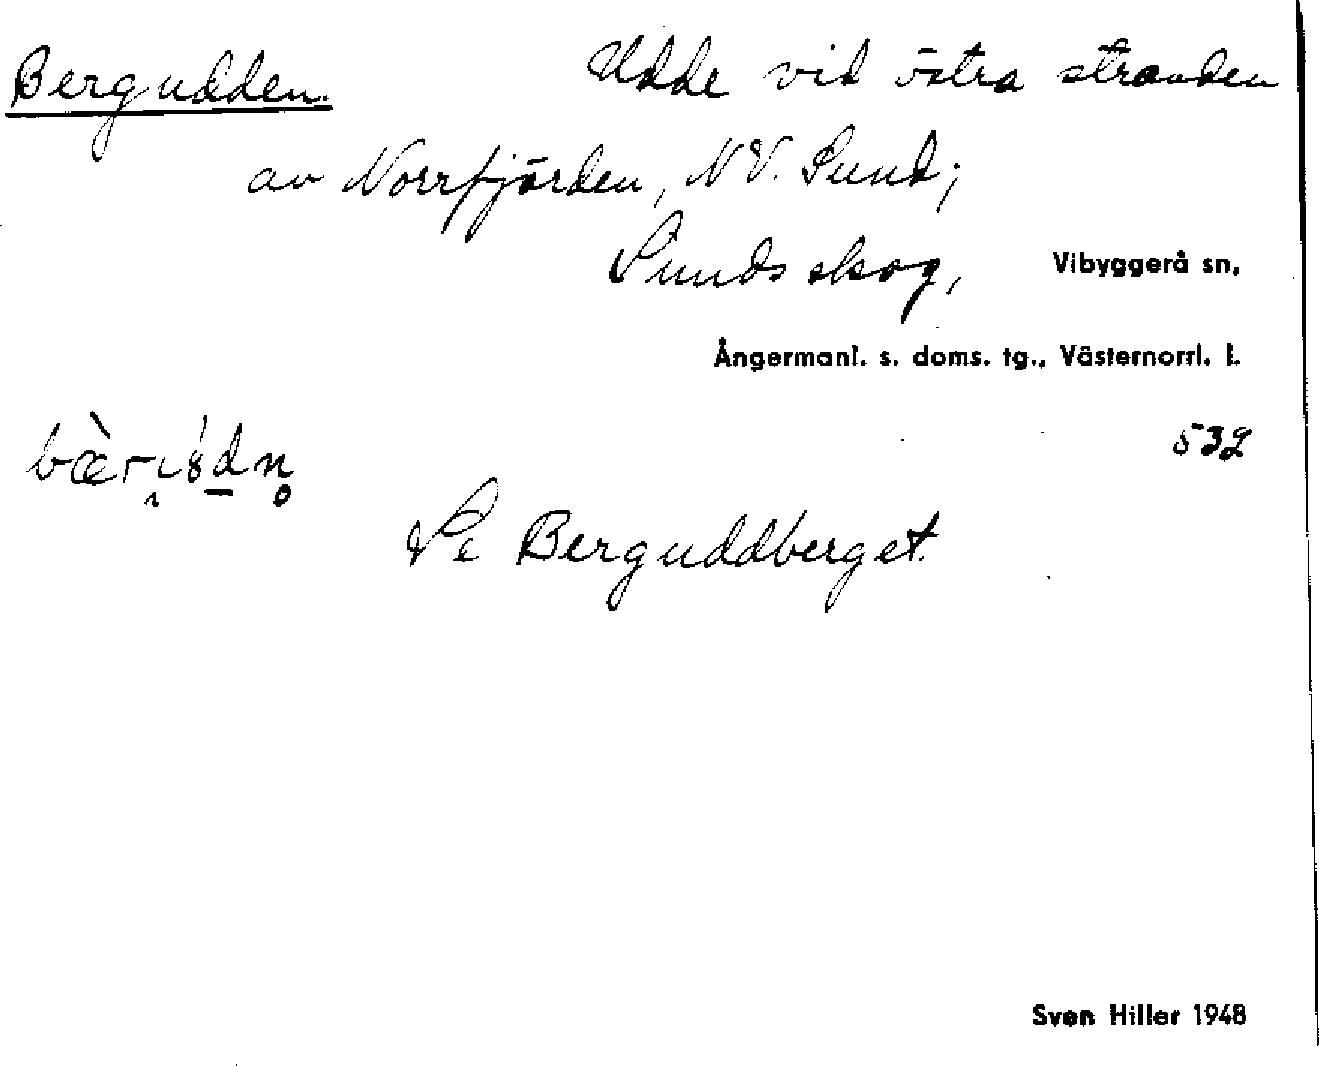 Bergudden. Udde vid östra stranden
av Norrfjärden, NV. Sund;
Sunds skog, Vibyggerå sn,
Ångermanl. s. doms. tg., Västernorrl. l.
532
Se Berguddberget.
Sven Hiller 1948